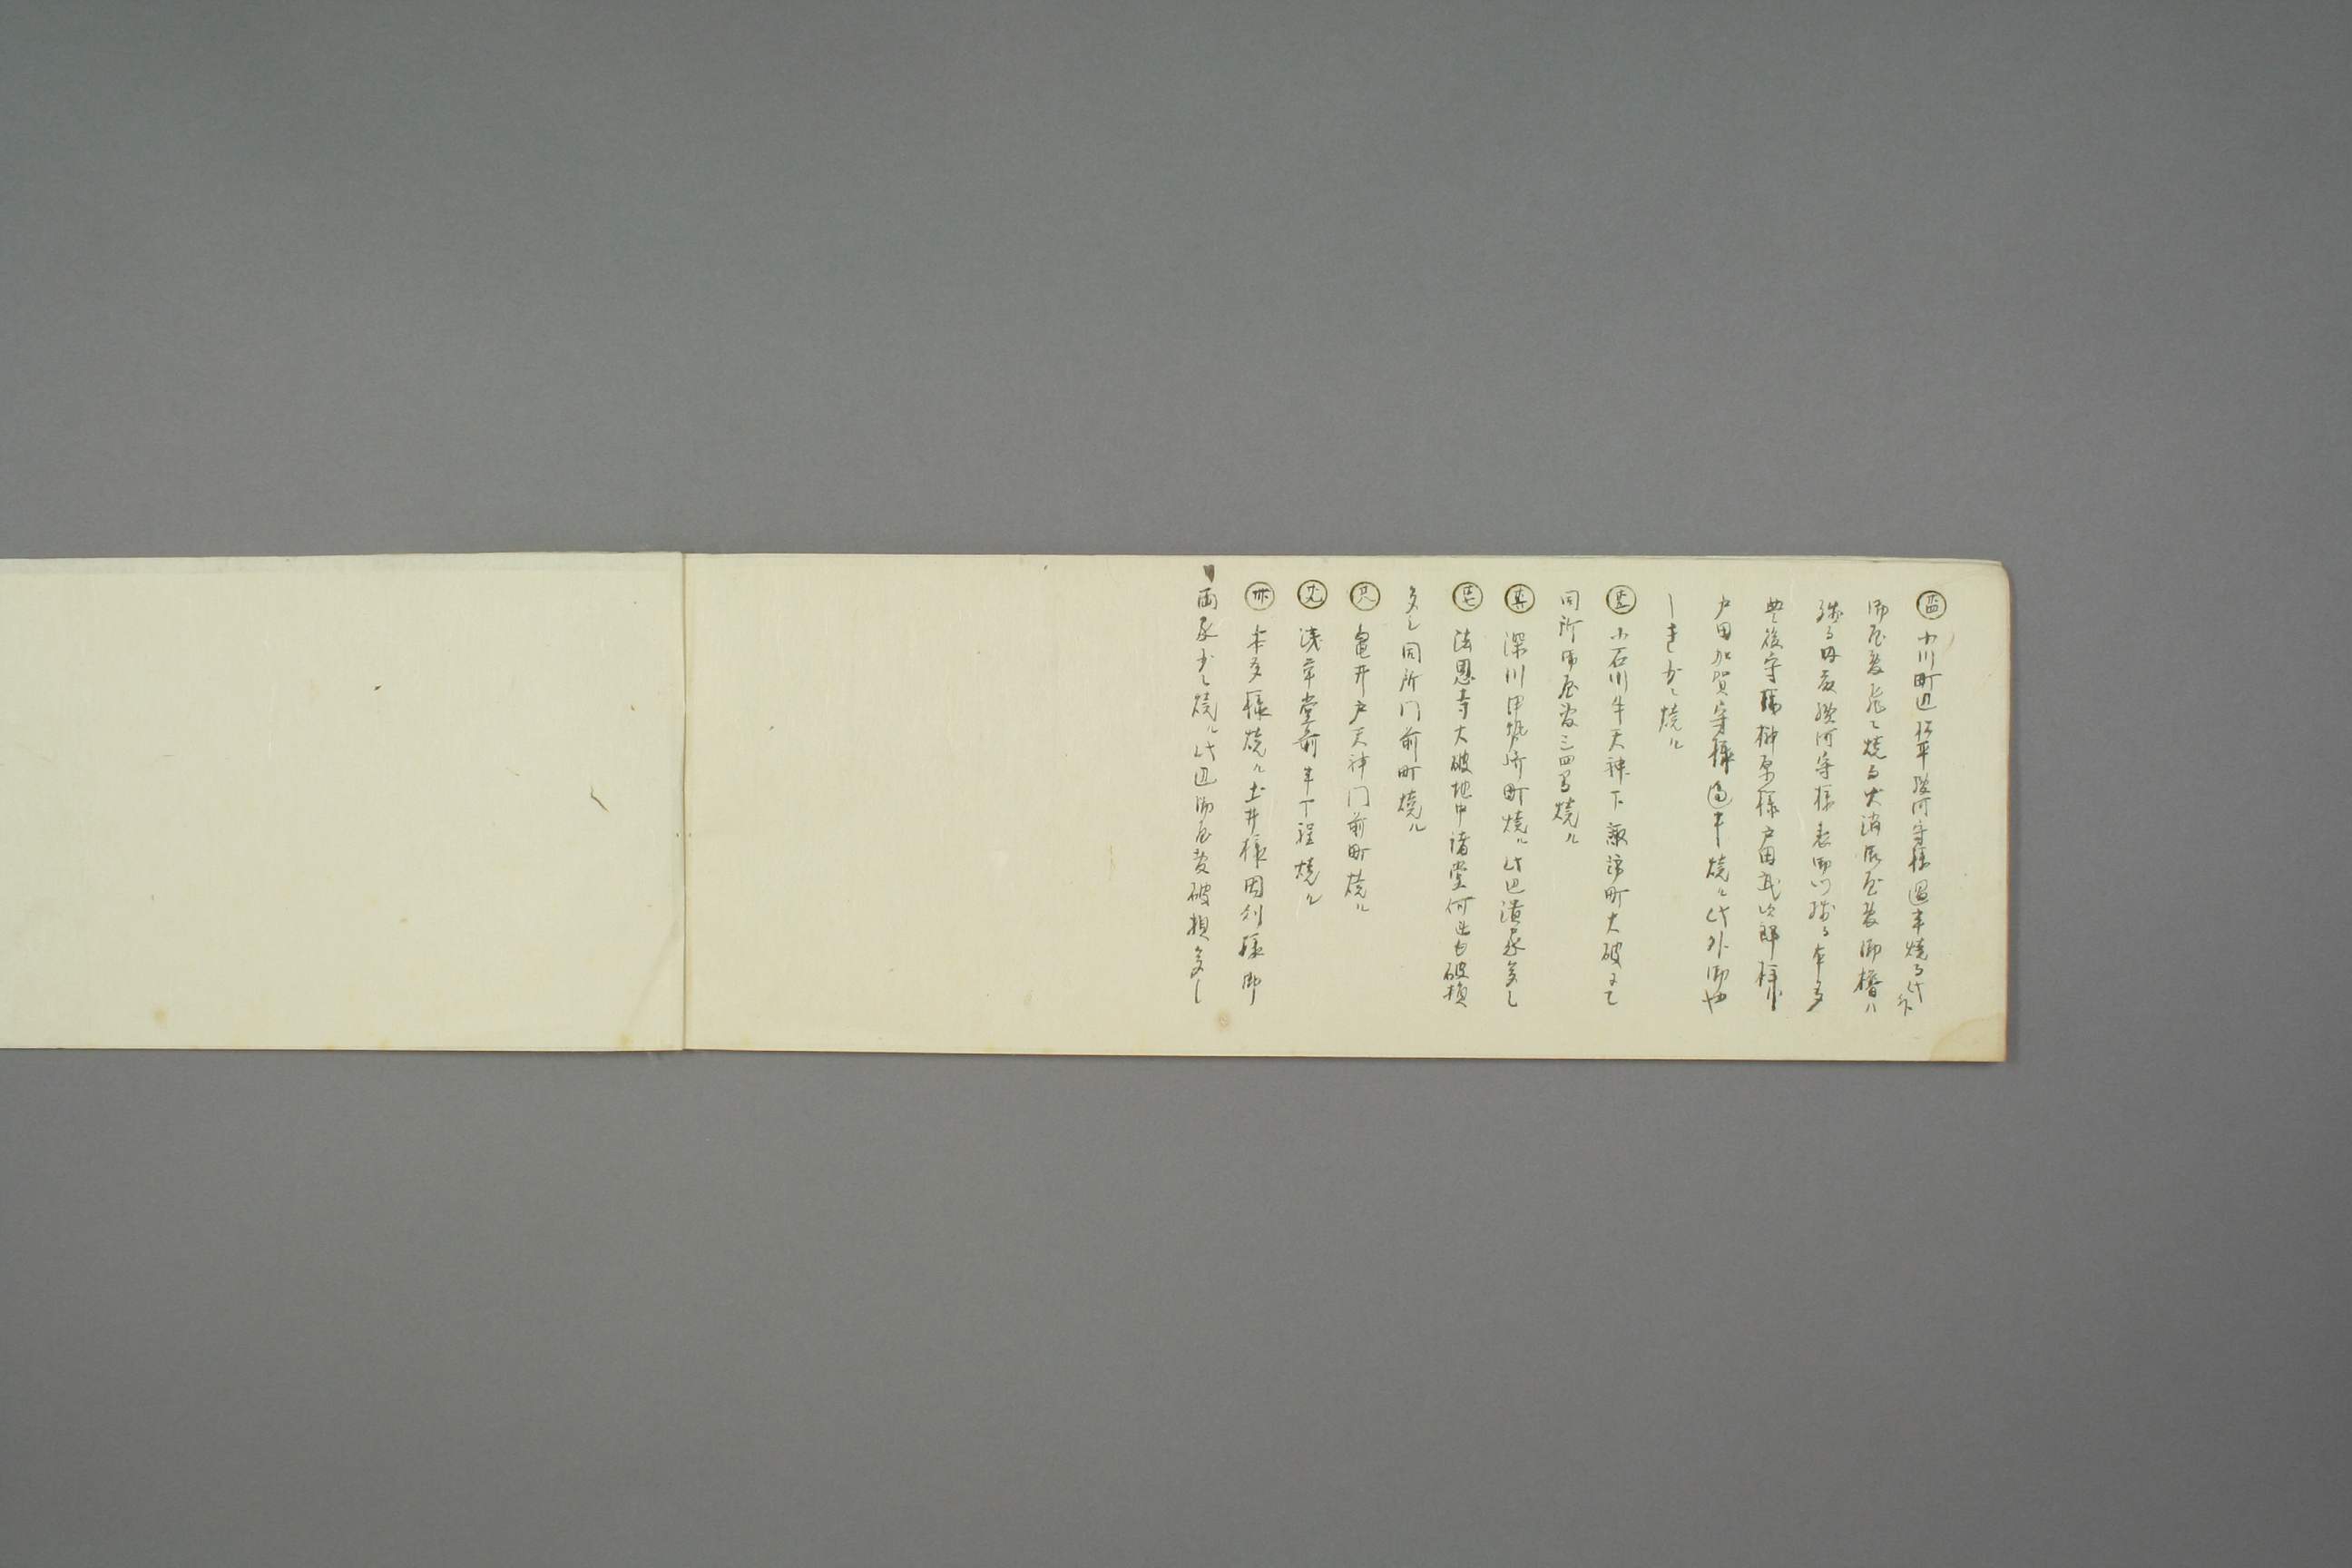 小川町辺松平駿河守様過半焼る此外
御屋敷飛て焼る火消御屋敷御櫓ハ
残る内藤駿河守様表御門残る本多
豊後守様榊原様戸田武次郎様
戸田加賀守様過半焼ル此外御や
しき少〻焼ル
小石川牛天神下諏訪町大破にて
同所御屋敷三四間焼ル
深川甲州済町焼ル此辺潰家多し
法恩寺大破地中諸堂何也も破損
多し同所門前町焼ル
亀井戸天神門前町焼ル
浅草堂前半丁程焼ル
本多様焼ル土井様因州様御
両家少〻焼ル此辺御屋敷破損多し